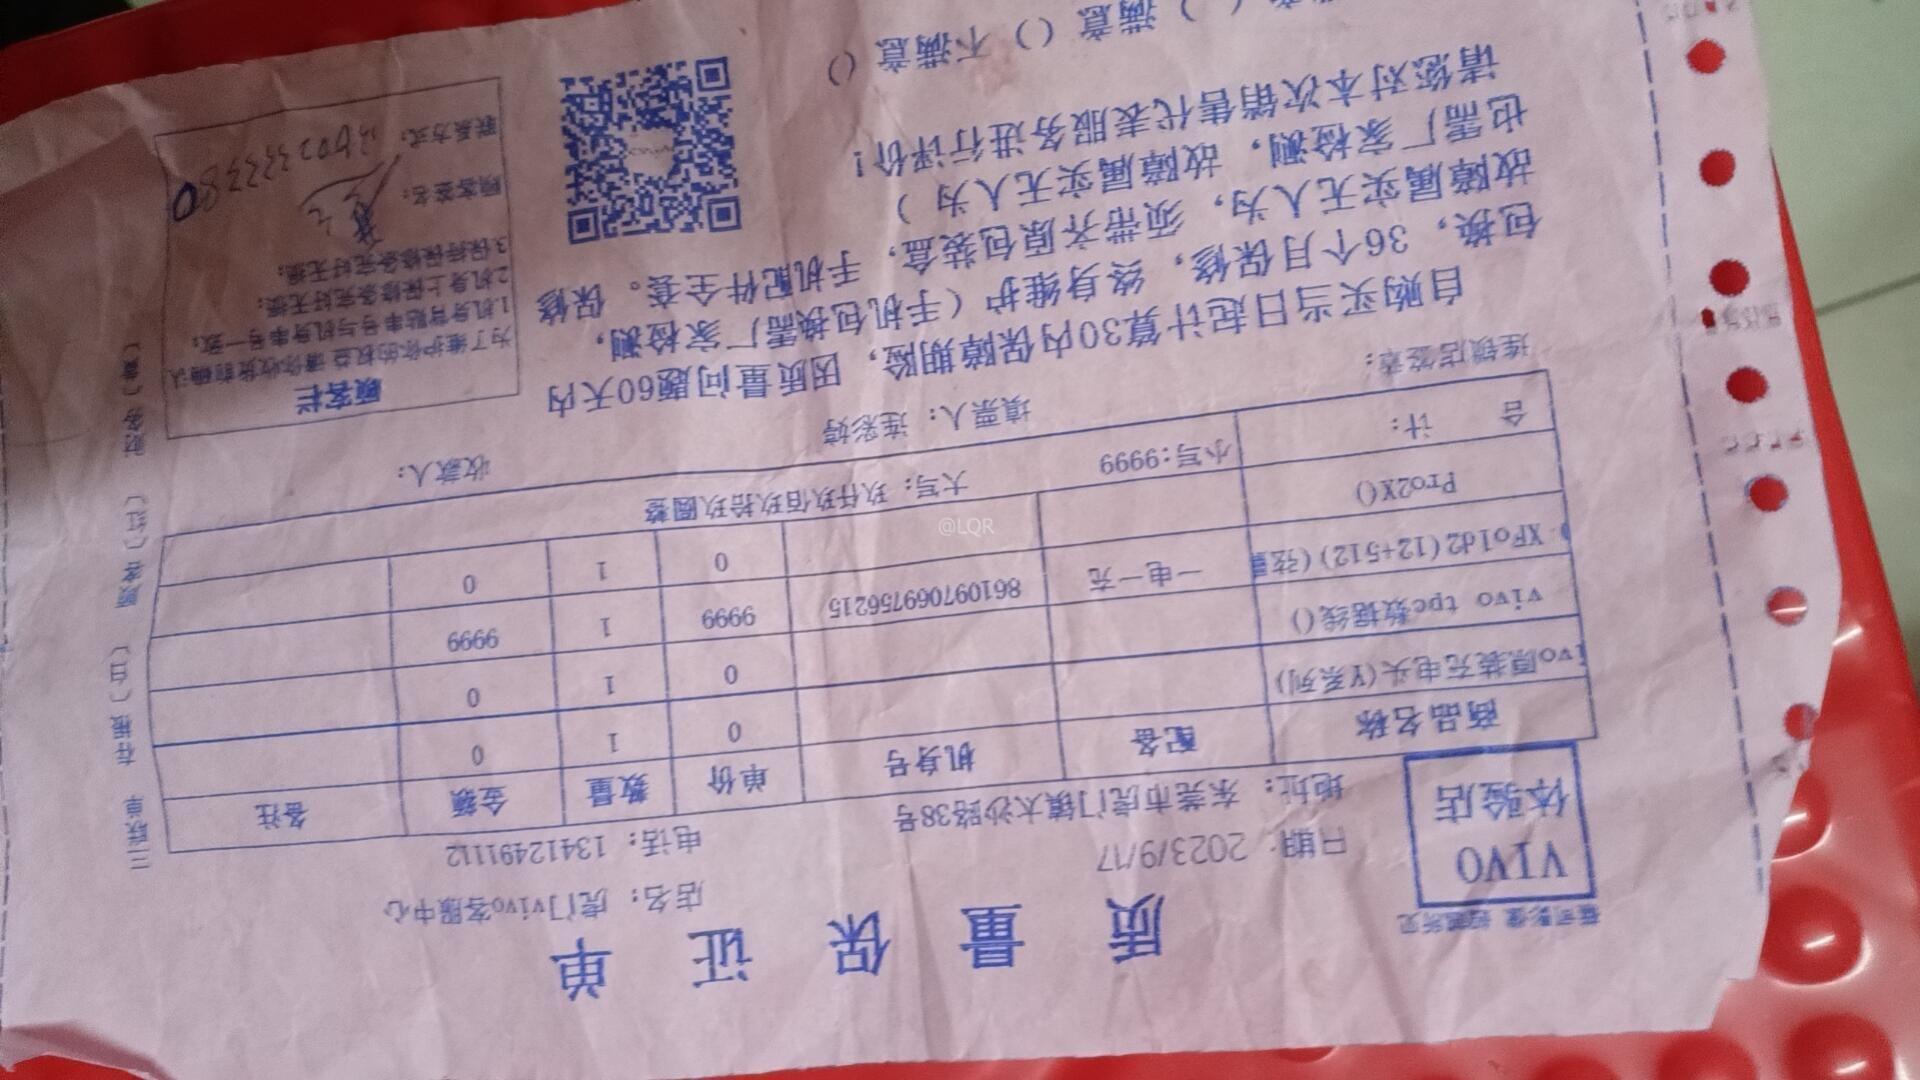 质量保证单
VIVO
体验店
店名：虎门vivo客服中心
日期：2023/9/17
电话：13412491112
地址：东莞市虎门镇大沙路38号
商品名称 配备 机身号 单价 数量 金额 备注
ivo原装充电头(Y系列) 0 1 0
vivo tpc数据线() 0 1 0
XFold2(12+512)(弦 一电一充 861097069756215 9999 1 9999
Pro2X() 0 1 0
合 计： 小写:9999 大写：玖仟玖佰玖拾玖圆整
连锁店签章： 填票人：连彩婷 收款人：
自购买当日起计算30内保障期险，因质量问题60天内
包换，36个月保修，终身维护（手机包换需厂家检测，
故障属实无人为，须带齐原包装盒，手机配件全套。保修
也需厂家检测，故障属实无人为）
请您对本次销售代表服务进行评价！
满意（） 不满意（）
顾客栏
为了维护你的权益请你收货前确认
1.机身背贴串号与机身串号一致；
2.机身上保修条完好无损；
3.保持保修条完好无损；
顾客签名：
联系方式：
三联单 存根（白） 顾客（红） 财务（黄）
@LQR